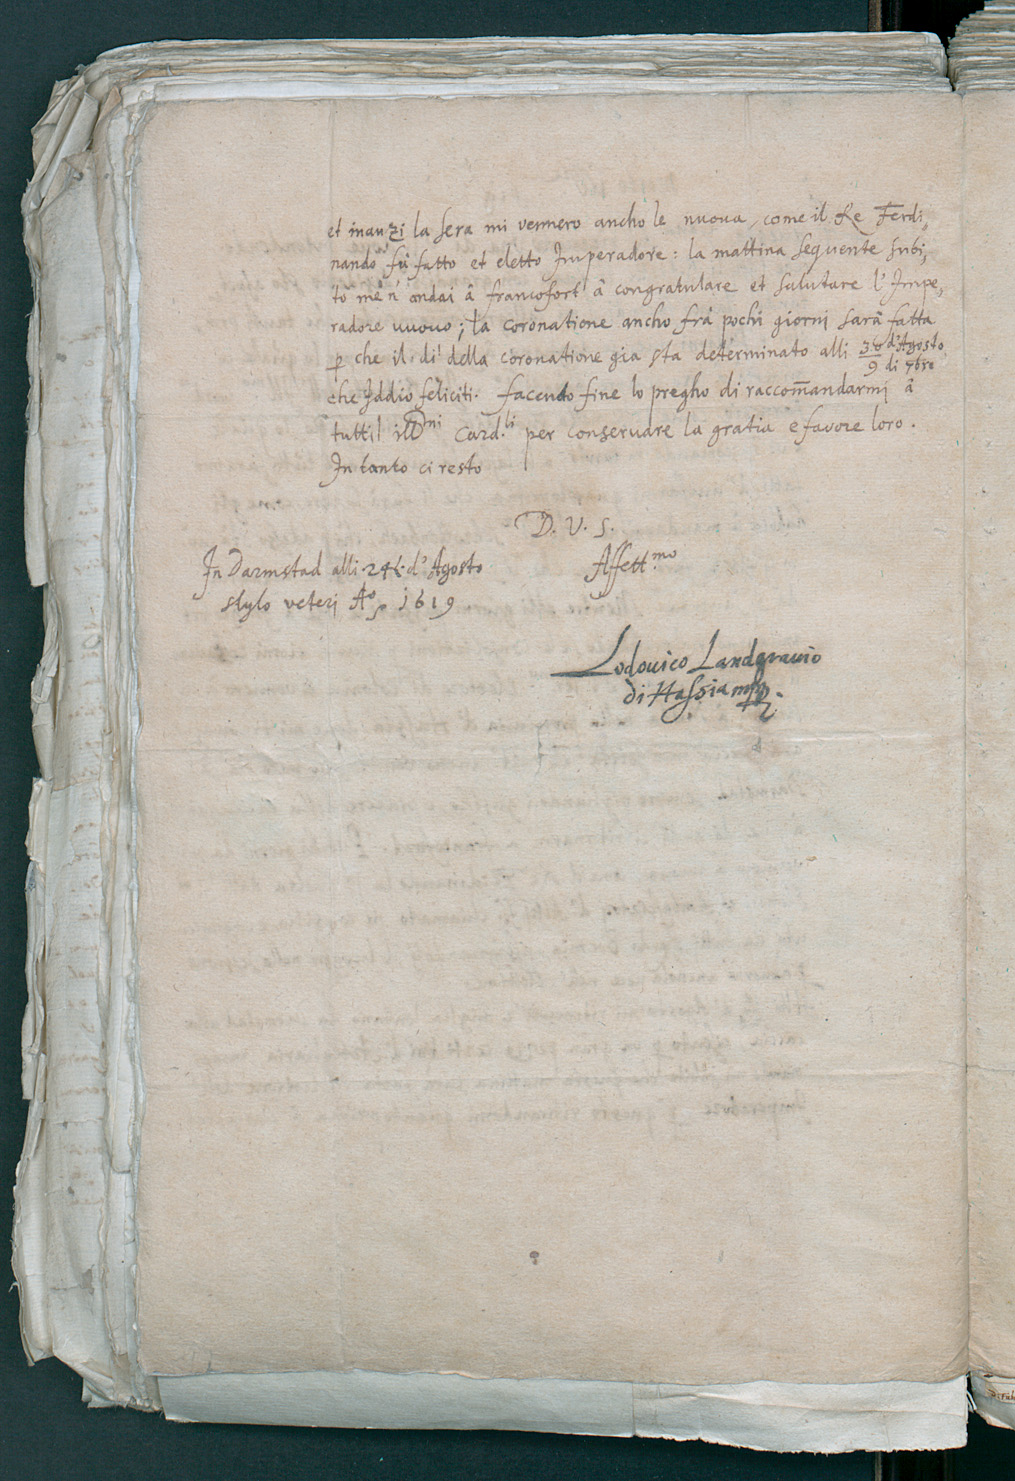 et inanzi la sera mi vennero ancho le nuova, come il Re Ferdi,,
nando fù fatto et eletto Imperadore: la mattina sequente subi,,
to me n' andai â francofort â congratulare et salutare l'Impe,,
radore nuovo; la coronatione ancho frâ pochi giorni sarâ fatta
ꝑ che il dì della coronatione gia sta determinato alli 30 d'Agosto
9 di 7bre
che Iddio feliciti. facendo fine lo pregho di raccom̄andarmi â
tutti illmi Card.li per conservare la gratia e favore loro.
In tanto ci resto
D. V. S.
Affett.mo
In Darmstad alli 24. d'Agosto
stylo veteri Ao 1619
Lodovico Landgravio
di Hassia mp